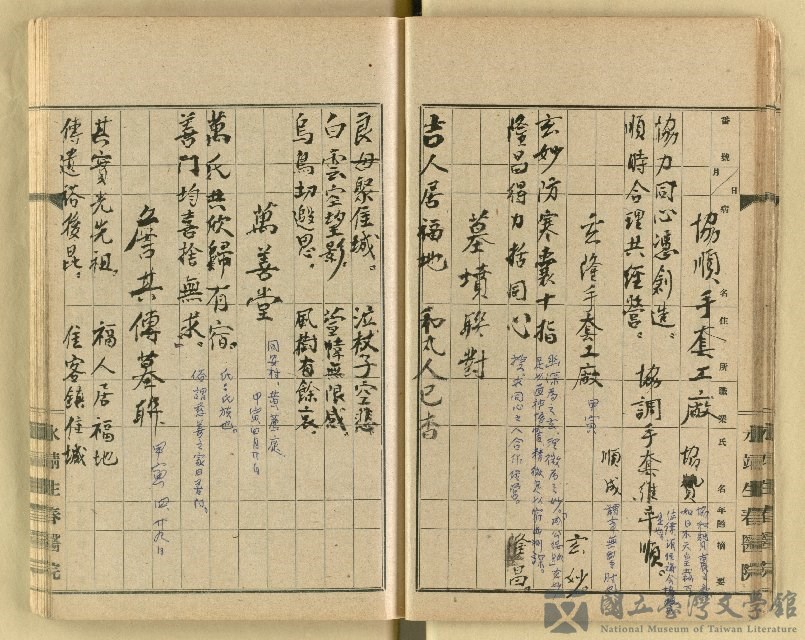 番號
月 日
病名
住所
職業
氏名
年齡
摘要
協順手套工廠 協贊
協力同心憑創造。 協調手套維平順。
順時合理共經營。 順成
玄隆手套工廠 甲寅 玄妙
玄妙防寒囊十指
隆昌得力括同心 隆昌。
墓墳聯對
吉人居福地 和丸人已杳
永靖生春醫院
良母聚佳城。 泣杖子空悲
白雲空望影。 萱幃無限感。
烏鳥切遐思。 風樹有餘哀。
萬善堂 同安村、黃萬 甲寅四月
萬氏共欣歸有宿。 氏：氏族也。
善門均喜捨無求。 俗謂慈善之家曰善門。
詹其傳墓聯 甲寅 四 廿九日
其實光先祖。 福人居福地
傳遺裕後昆。 佳客鎮佳城
永靖生春醫院
國立臺灣文學館
National Museum of Taiwan Literature